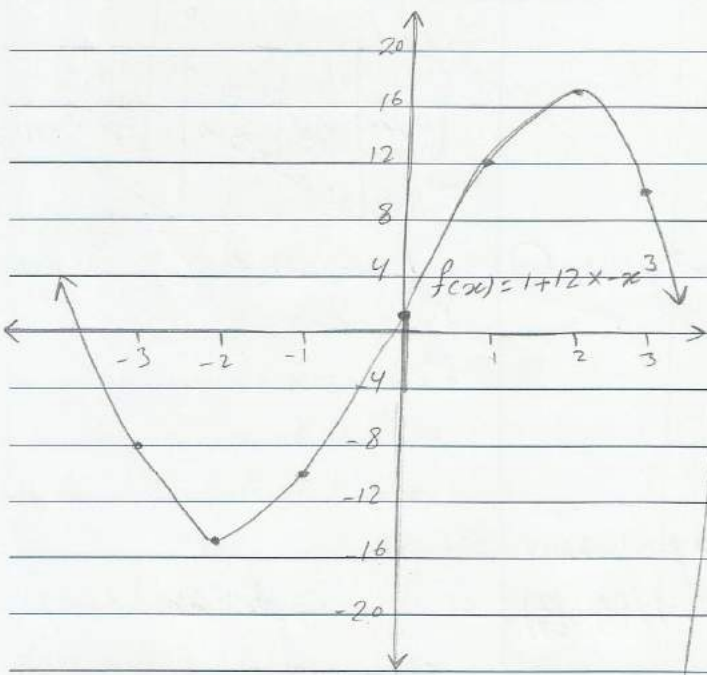 20
16
12
8
4
f(x) = 1+12x-x³
-3 -2 -1 1 2 3
-4
-8
-12
-16
-20